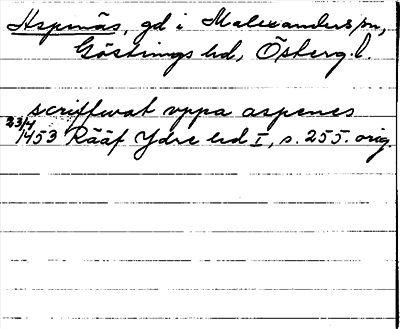 Aspenäs, gd i Malexanders sn,
Göstrings hd, Österg. l.
scriffwat vppa aspenes
23/4 1453 Rääf Ydre hd I, s. 255. orig.